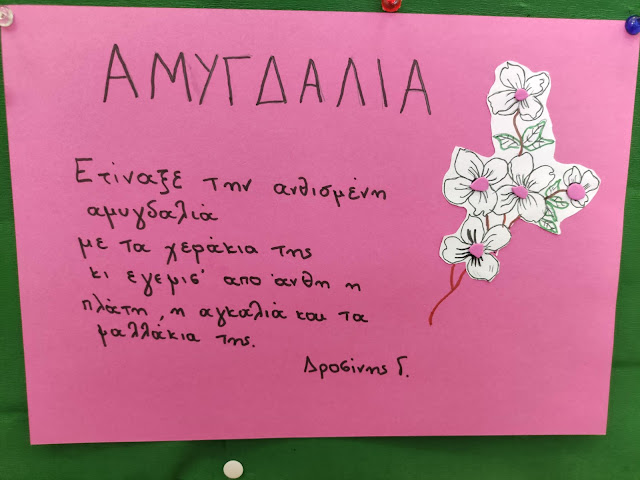 ΑΜΥΓΔΑΛΙΑ
Ετίναξε την ανθισμένη
αμυγδαλιά
με τα χεράκια της
κι εγεμισ' απο άνθη η
πλάτη, η αγκαλιά και τα
μαλλάκια της.
Δροσίνης Γ.